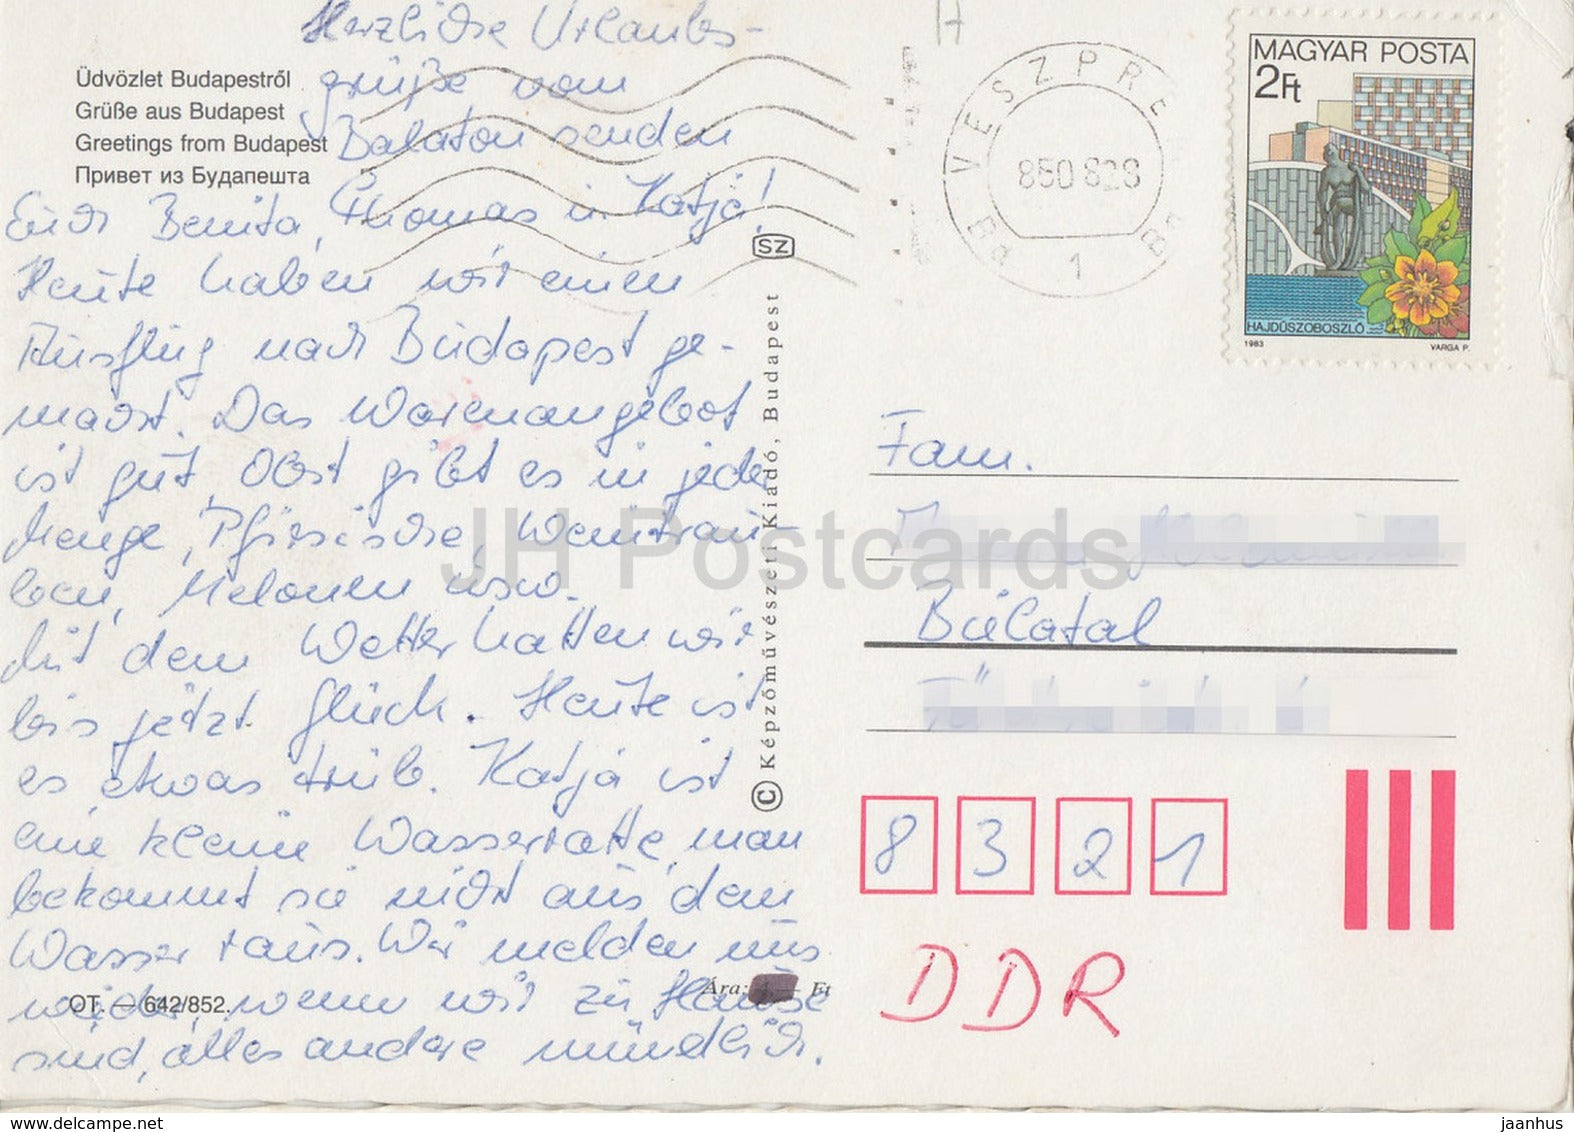 Herzliche Urlaubs-
grüße vom
Balaton senden
Euch Benita, Thomas u. Katja!
Heute haben wir einen
Ausflug nach Budapest ge-
macht. Das Warenangebot
ist gut, Obst gibt es in jeder
Menge, Pfirsische, Weintrau-
ben, Melonen usw.
Mit dem Wetter hatten wir
bis jetzt Glück. Heute ist
es etwas trüb. Katja ist
eine kleine Wasserratte, man
bekommt sie nicht aus dem
Wasser raus. Wir melden uns
wieder, wenn wir zu Hause
sind, alles andere mündlich.
Üdvözlet Budapestről
Grüße aus Budapest
Greetings from Budapest
Привет из Будапешта
SZ
© Képzőművészeti Kiadó, Budapest
OT. — 642/852.
Ára: Ft
VESZPRÉ
850828
1
MAGYAR POSTA
2Ft
HAJDÚSZOBOSZLÓ
1983 VARGA P.
Fam.
Bülatal
8 3 2 1
DDR
JH Postcards
www.delcampe.net
jaanhus